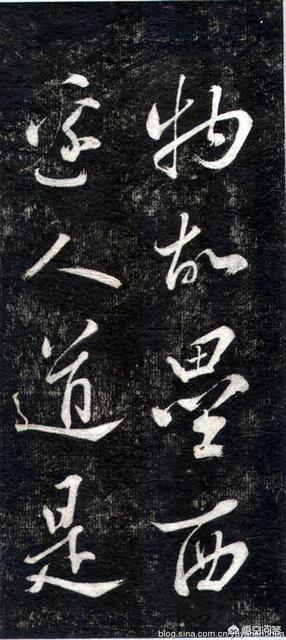 物故壘西
邊人道是
blog.sina.com.cn
悟空问答